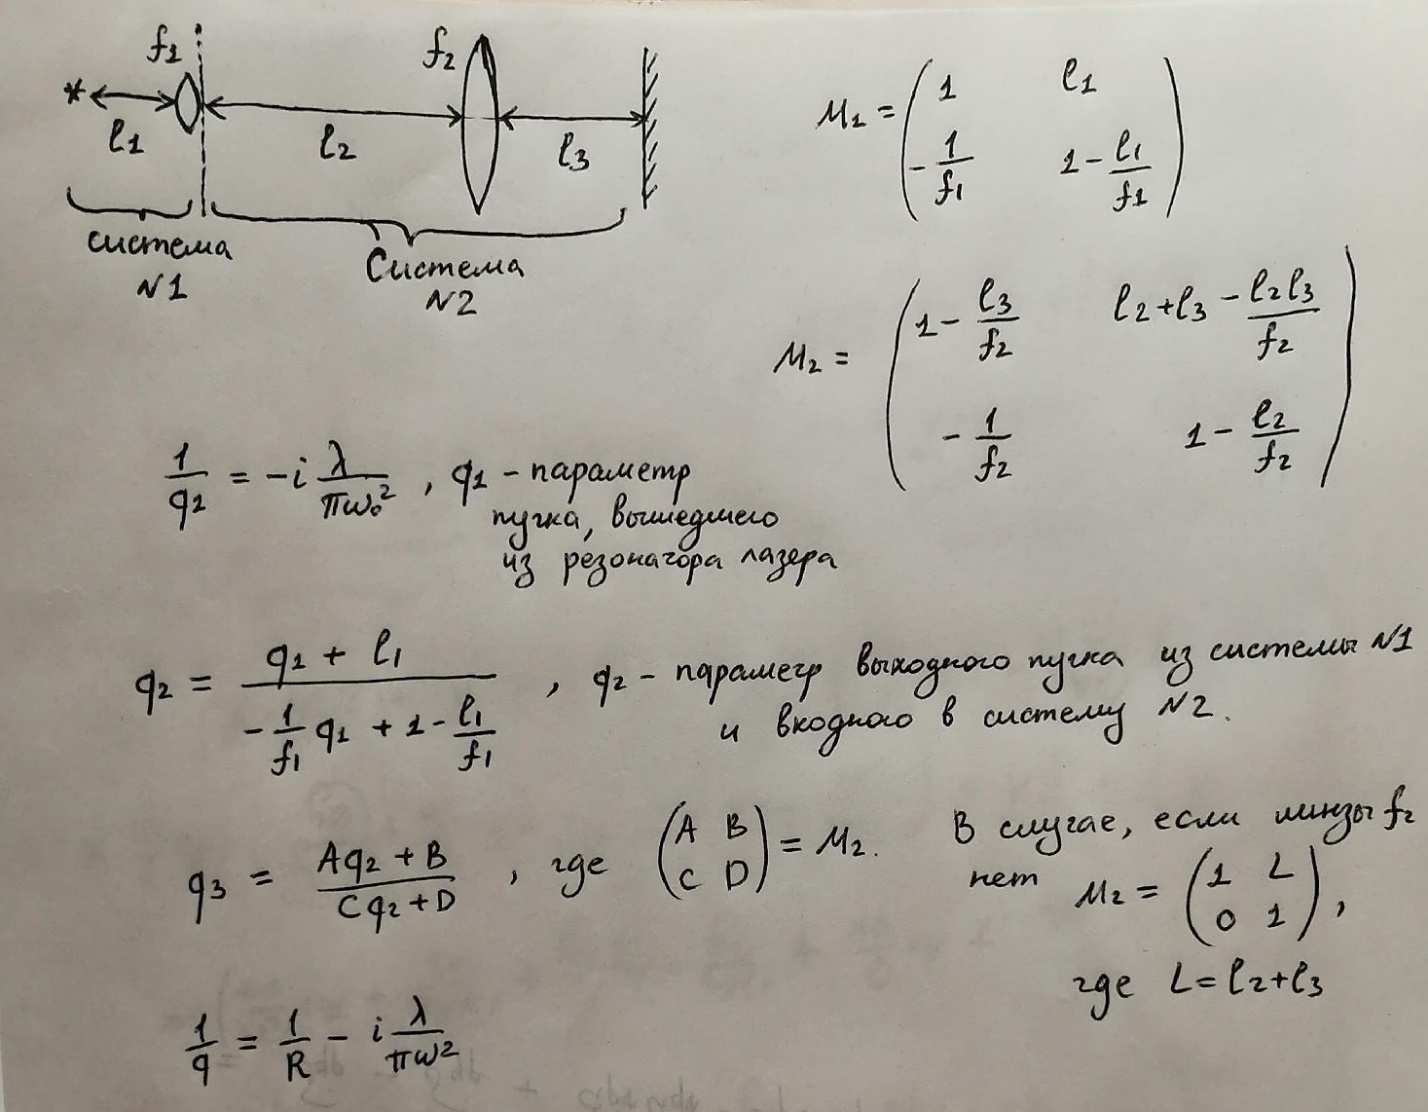 f₁
f₂
l₁
l₂
l₃
система
N1
Система
N2
M₁ = ( 1 l₁
-1/f₁ 1 - l₁/f₁ )
M₂ = ( 1 - l₃/f₂ l₂ + l₃ - l₂l₃/f₂
-1/f₂ 1 - l₂/f₂ )
1/q₁ = -i λ/πω₀² , q₁ - параметр
пучка, вышедшего
из резонатора лазера
q₂ = (q₁ + l₁)/(-1/f₁ q₁ + 1 - l₁/f₁) , q₂ - параметр выходного пучка из системы N1
и входного в систему N2.
q₃ = (Aq₂ + B)/(Cq₂ + D) , где (A B
C D) = M₂.
В случае, если линзы f₂
нет M₂ = (1 L
0 1),
где L = l₂ + l₃
1/q = 1/R - i λ/πω²